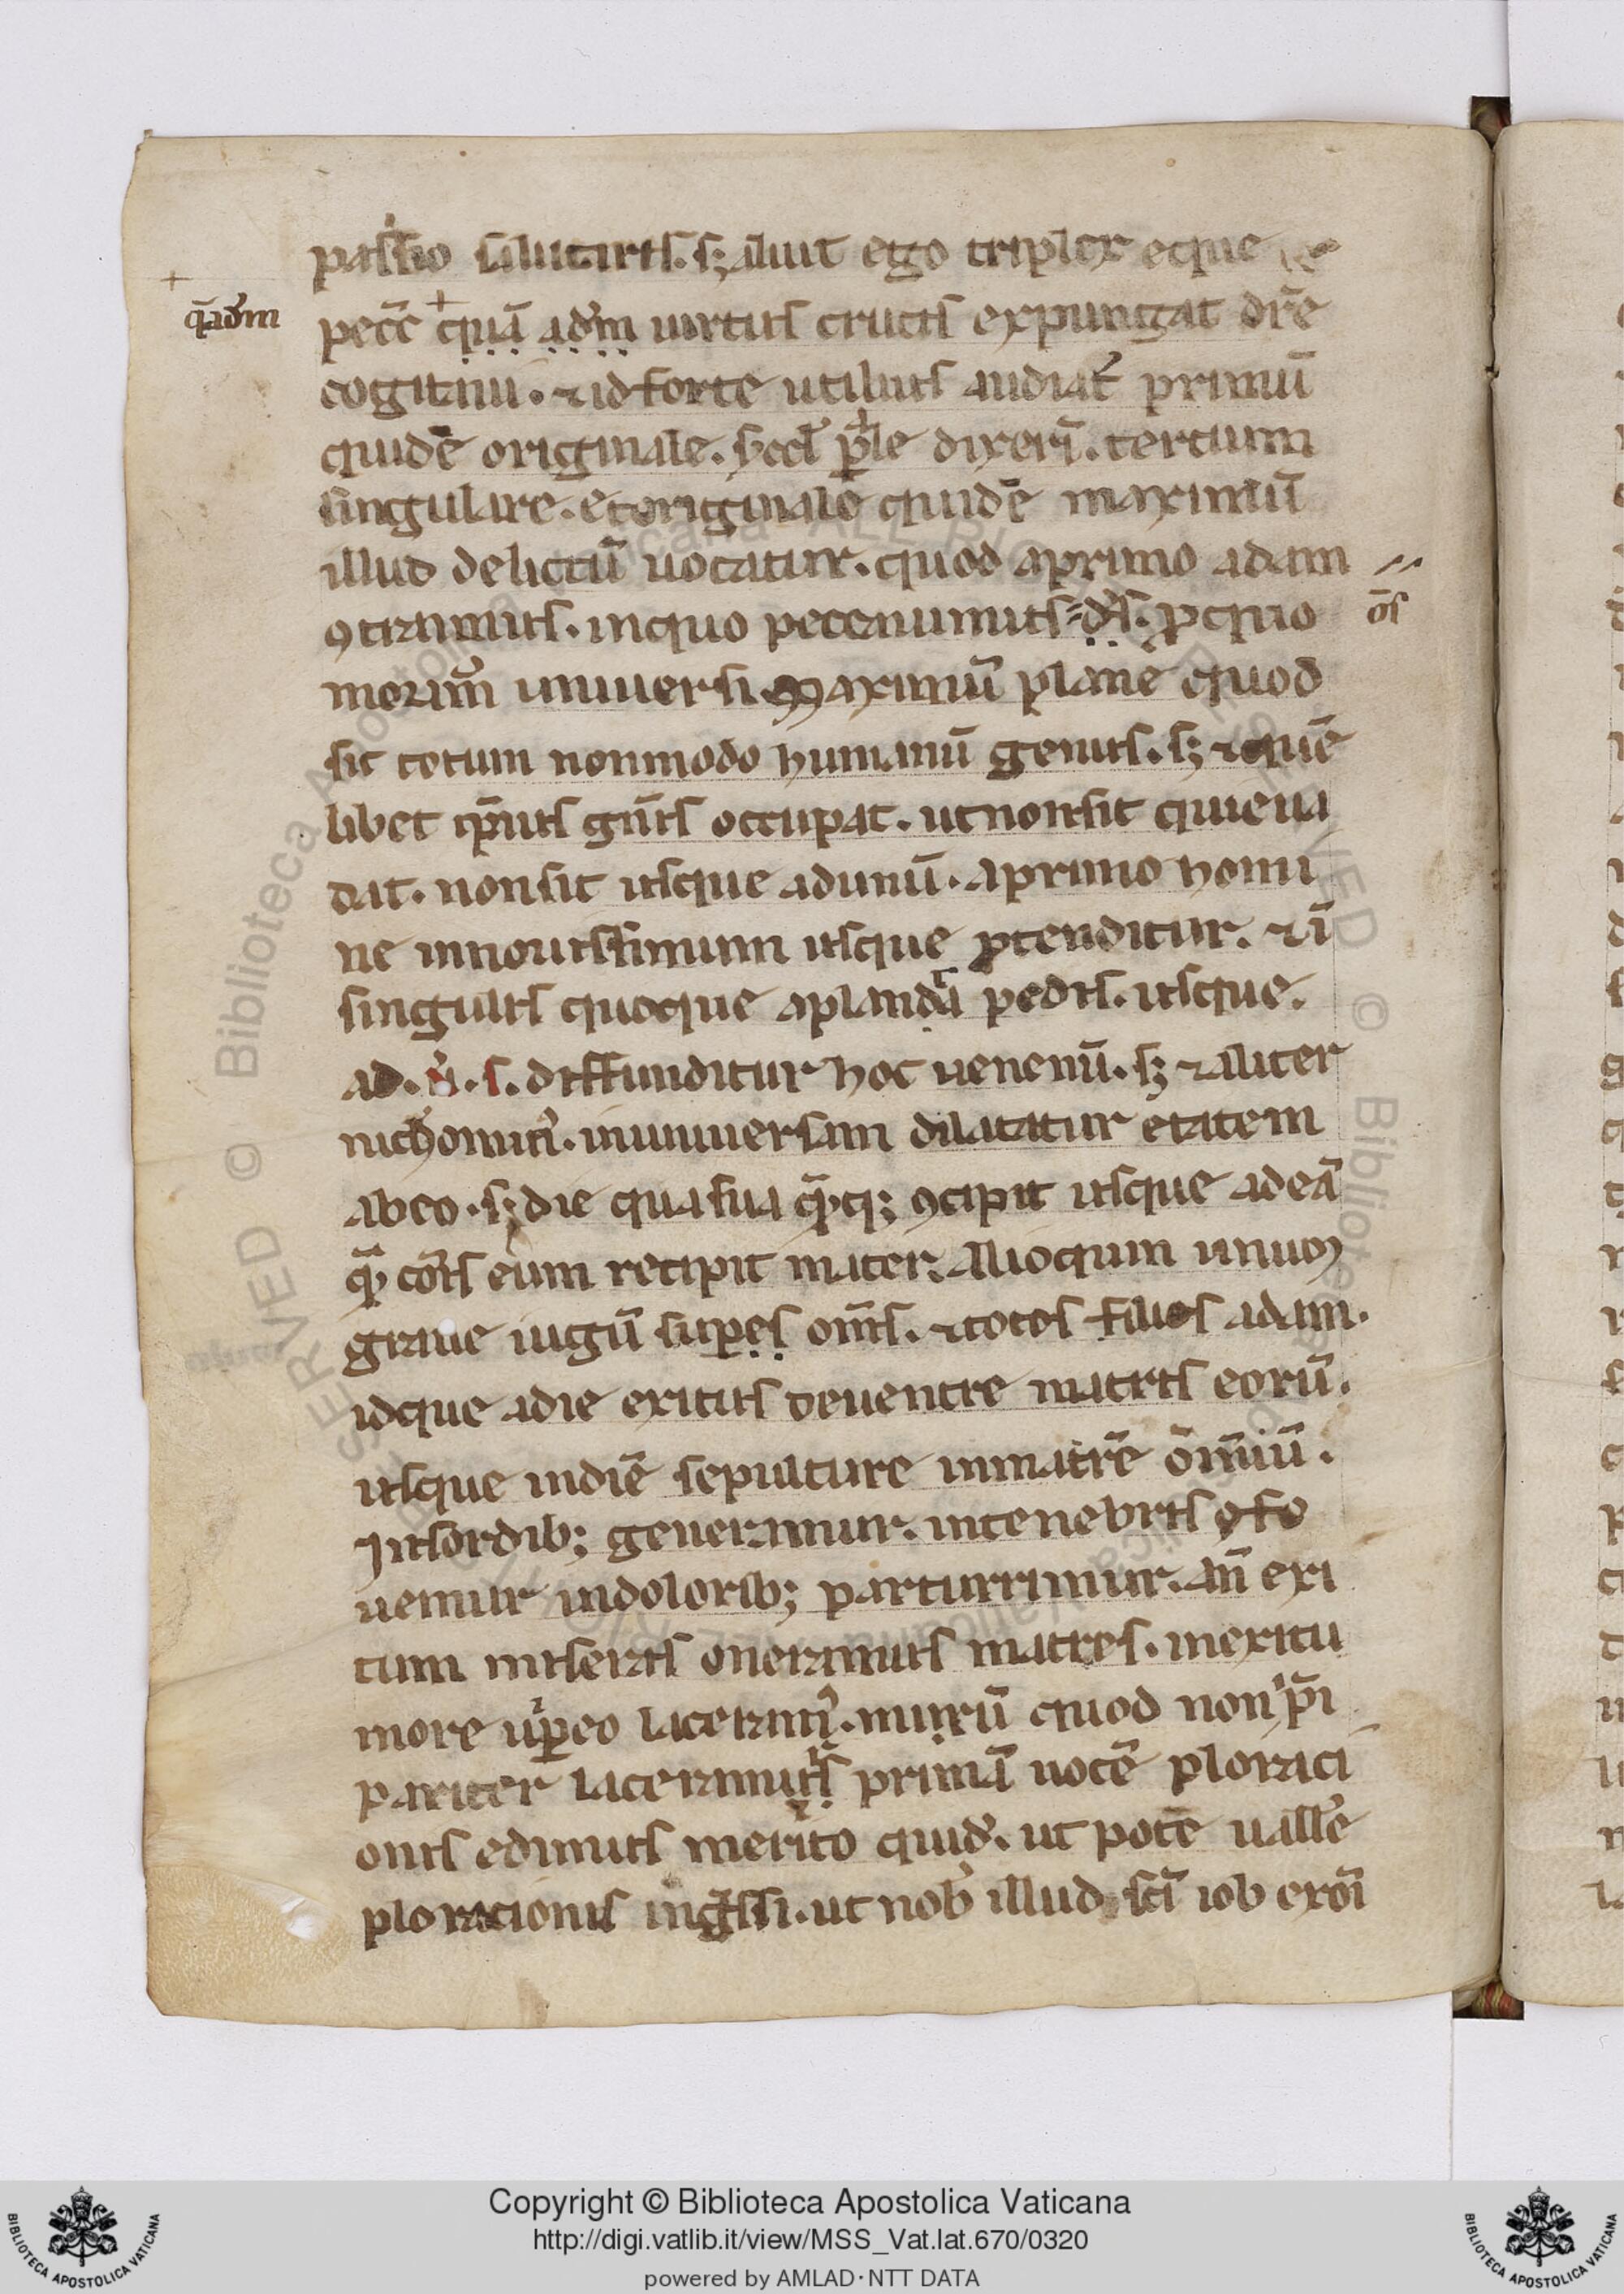 passio salutaris. sꝫ aliut ego triplex eque
pecc̄ quā adm̄ uirtus crucis expungat dr̄e
q̄adm
cogitaui. ⁊ id forte utilius audiat᷑ primū
quidē originale. sꝫ ccl̄ ꝑ̄le dixerī. tercium
singulare. et originale quidē maximū
illud delictū uocatur. quod a primo adam
ꝯtraimus. in quo peccauimus ds̄. ꝓ quo
ōs
morim̄ uniuersi. Maximū plane quod
sic totum non modo humanū genus. sꝫ ⁊ quē
libet ip̄ius gn̄is occupat. ut non sit qui eua
dat. non sit usque ad unū. a primo homi
ne in nouissimum usque ꝓtenditur. ⁊ ī
singulis quoque a planda pedis. usque.
ad. ū. s. diffunditur hoc uenenū. sꝫ ⁊ aliter
nichominꝰ. in uniuersam dilatatur etatem
ab eo. sꝫ die qua sua q̄ꝙꝫ ꝯcipit usque ad eā
q̄ cōis eum recipit mater. Alioquin unum
graue iugū super es om̄is. ⁊ totos filios adam.
idque a die exitus de uentre matris eorū.
usque in diē sepulture in matrē om̄iū.
In sordibꝫ generamur. in tenebris ꝯfo
uemur in doloribꝫ parturrimur. an̄ exi
tum miseras oneramus matres. in exitu
more uiꝑeo laceramꝰ. mirū quod non ip̄i
pariter laceramur primā uocē ploraci
onis edimus merito quid̄. ut pote ualle
ploracionis ingssi. ut nob̄ illud sc̄i iob ex oī
Copyright © Biblioteca Apostolica Vaticana
http://digi.vatlib.it/view/MSS_Vat.lat.670/0320
powered by AMLAD·NTT DATA
BIBLIOTECA APOSTOLICA VATICANA
BIBLIOTECA APOSTOLICA VATICANA